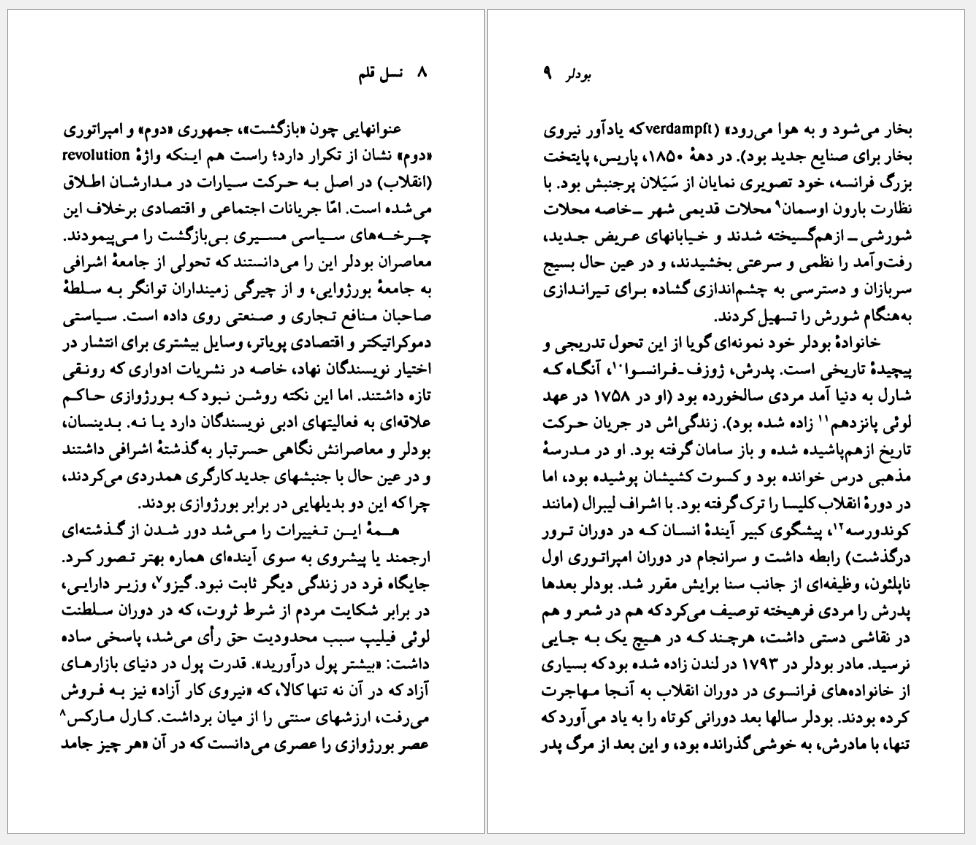 ۸ نسل قلم
عنوانهایی چون «بازگشت»، جمهوری «دوم» و امپراتوری
«دوم» نشان از تکرار دارد؛ راست هم اینکه واژهٔ revolution
(انقلاب) در اصل به حرکت سیارات در مدارشان اطلاق
می‌شده است. امّا جریانات اجتماعی و اقتصادی برخلاف این
چرخه‌های سیاسی مسیری بی‌بازگشت را می‌پیمودند.
معاصران بودلر این را می‌دانستند که تحولی از جامعهٔ اشرافی
به جامعهٔ بورژوایی، و از چیرگی زمینداران توانگر به سلطهٔ
صاحبان منافع تجاری و صنعتی روی داده است. سیاستی
دموکراتیکتر و اقتصادی پویاتر، وسایل بیشتری برای انتشار در
اختیار نویسندگان نهاد، خاصه در نشریات ادواری که رونقی
تازه داشتند. اما این نکته روشن نبود که بورژوازی حاکم
علاقه‌ای به فعالیتهای ادبی نویسندگان دارد یا نه. بدینسان،
بودلر و معاصرانش نگاهی حسرتبار به گذشتهٔ اشرافی داشتند
و در عین حال با جنبشهای جدید کارگری همدردی می‌کردند،
چراکه این دو بدیلهایی در برابر بورژوازی بودند.
همهٔ این تغییرات را می‌شد دور شدن از گذشته‌ای
ارجمند یا پیشروی به سوی آینده‌ای هماره بهتر تصور کرد.
جایگاه فرد در زندگی دیگر ثابت نبود. گیزو۷، وزیر دارایی،
در برابر شکایت مردم از شرط ثروت، که در دوران سلطنت
لوئی فیلیپ سبب محدودیت حق رأی می‌شد، پاسخی ساده
داشت: «بیشتر پول درآورید». قدرت پول در دنیای بازارهای
آزاد که در آن نه تنها کالا، که «نیروی کار آزاد» نیز به فروش
می‌رفت، ارزشهای سنتی را از میان برداشت. کارل مارکس۸
عصر بورژوازی را عصری می‌دانست که در آن «هر چیز جامد
بودلر ۹
بخار می‌شود و به هوا می‌رود» (verdampft که یادآور نیروی
بخار برای صنایع جدید بود). در دههٔ ۱۸۵۰، پاریس، پایتخت
بزرگ فرانسه، خود تصویری نمایان از سَیَلان پرجنبش بود. با
نظارت بارون اوسمان۹ محلات قدیمی شهر ــ خاصه محلات
شورشی ــ ازهم‌گسیخته شدند و خیابانهای عریض جدید،
رفت‌وآمد را نظمی و سرعتی بخشیدند، و در عین حال بسیج
سربازان و دسترسی به چشم‌اندازی گشاده برای تیراندازی
به‌هنگام شورش را تسهیل کردند.
خانوادهٔ بودلر خود نمونه‌ای گویا از این تحول تدریجی و
پیچیدهٔ تاریخی است. پدرش، ژوزف ـ فرانسوا۱۰، آنگاه که
شارل به دنیا آمد مردی سالخورده بود (او در ۱۷۵۸ در عهد
لوئی پانزدهم۱۱ زاده شده بود). زندگی‌اش در جریان حرکت
تاریخ ازهم‌پاشیده شده و باز سامان گرفته بود. او در مدرسهٔ
مذهبی درس خوانده بود و کسوت کشیشان پوشیده بود، اما
در دورهٔ انقلاب کلیسا را ترک گرفته بود. با اشراف لیبرال (مانند
کوندورسه۱۲، پیشگوی کبیر آیندهٔ انسان که در دوران ترور
درگذشت) رابطه داشت و سرانجام در دوران امپراتوری اول
ناپلئون، وظیفه‌ای از جانب سنا برایش مقرر شد. بودلر بعدها
پدرش را مردی فرهیخته توصیف می‌کرد که هم در شعر و هم
در نقاشی دستی داشت، هرچند که در هیچ یک به جایی
نرسید. مادر بودلر در ۱۷۹۳ در لندن زاده شده بود که بسیاری
از خانواده‌های فرانسوی در دوران انقلاب به آنجا مهاجرت
کرده بودند. بودلر سالها بعد دورانی کوتاه را به یاد می‌آورد که
تنها، با مادرش، به خوشی گذرانده بود، و این بعد از مرگ پدر